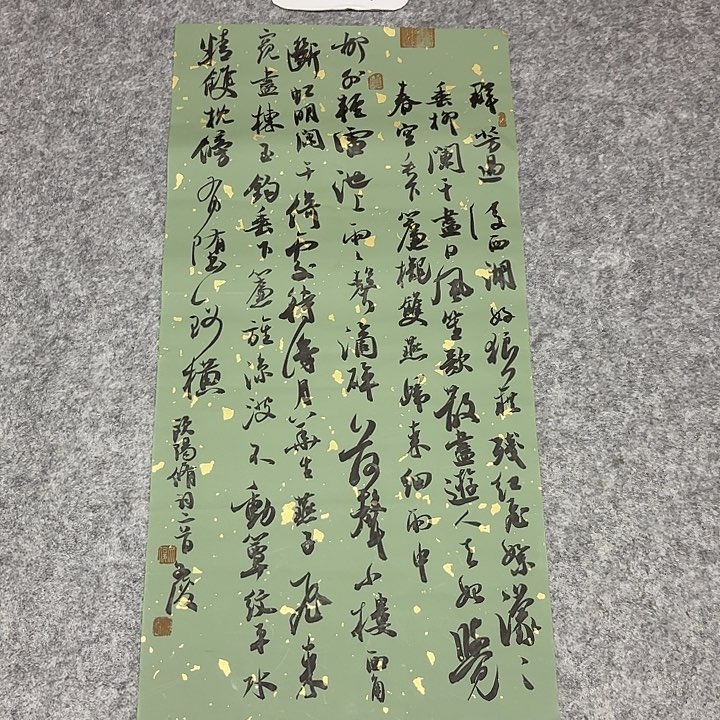 群芳過後西湖好狼藉殘紅飛絮濛〻
垂柳闌干盡日風笙歌散盡遊人去始覺
春空垂下簾櫳雙燕歸來細雨中
柳外輕雷池上雨〻聲滴碎荷聲小樓西角
斷虹明闌干倚處待得月華生燕子飛來
窺畫棟玉鉤垂下簾旌涼波不動簟紋平水
精雙枕傍有墮釵橫
歐陽脩詞二首